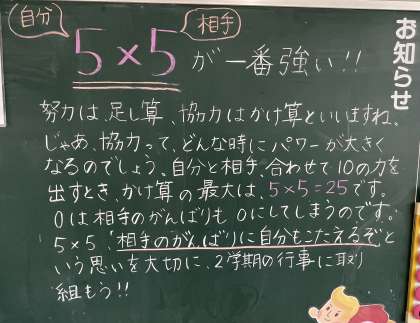 自分 相手
5×5が一番強い!!
お知らせ
努力は、足し算、協力はかけ算といいますね。
じゃあ、協力って、どんな時にパワーが大きく
なるのでしょう。自分と相手、合わせて10の力を
出すとき、かけ算の最大は、5×5=25です。
0は相手のがんばりも0にしてしまうのです。
5×5「相手のがんばりに自分もこたえるぞ」と
いう思いを大切に、2学期の行事に取り
組もう!!